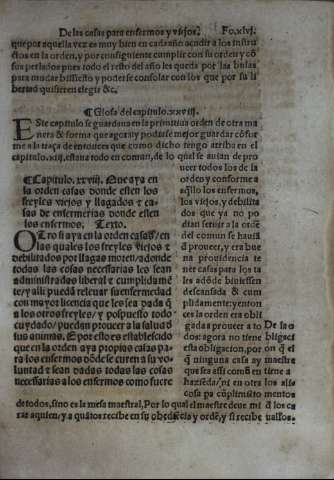 De las casas para enfermos y viejos? Fo.xlvj.
que por aquella vez es muy bien en cada año acudir a los instru
ctos en la orden, y por consiguiente cumplir con su orden y có
sus perlados pues todo el resto del año les queda por las bulas
para mudar bissiesto y poderse consolar con los que por su li
bertad quisieren elegir &c.
¶ Glosa del capitulo.xxviij.
Este capitulo se guardaua en la primitiua orden de otra ma
nera & forma que agora: y podiase mejor guardar cōfor
me a la traça de entonces que como dicho tengo arriba en el
capitulo.xiij. estaua todo en comun, de lo qual se auian de pro
ueer todos los de la
orden y conforme a
aq̃llo los enfermos,
los viejos, y debilita
dos que ya no po
dian seruir a la orde
del comun se hauiā
d̃ proueer, y era bue
na prouidencia te
ner casas para los ta
les adōde biuiessen
descansada & cum
plidamente: y enton
ces la orden era obli
gada a proueer a to
dos: agora no tiene
esta obligacion, por
q̃ ninguna casa ay
que sea assi comū en
hazienda, ni en otra
cosa pa cōplimiēto
¶ Capitulo.xxviij. Que aya en
la orden casas donde esten los
freyles viejos y llagados & ca
sas de enfermerias donde esten
los enfermos. Texto.
Otrosi aya en la orden casas, en
las quales los freyles viejos &
debilitados por llagas moren, adonde
todas las cosas necessarias les sean
administradas liberal & cumplidamē
te, y alli pueda releuar su enfermedad
con mayor licencia que les sea dada q̃
a los otros freyles, y pospuesto todo
cuydado, puedan proueer a la salud d̃
sus animas. E por esto es establecido
que en la orden aya propias casas pa
ra los enfermos dōde se curen a su vo
luntad & sean dadas todas las cosas
necessarias a los enfermos como fuere
De la o
bligacion
on q̃ el
maestre
tiene a
los alī
mentos
d̃ los ca
ualleros.
de todos, sino es la mesa maestral. Por lo qual el maestre deue mi
rar a quien, y a quātos recibe en su obediēcia y ordē, y si recibe